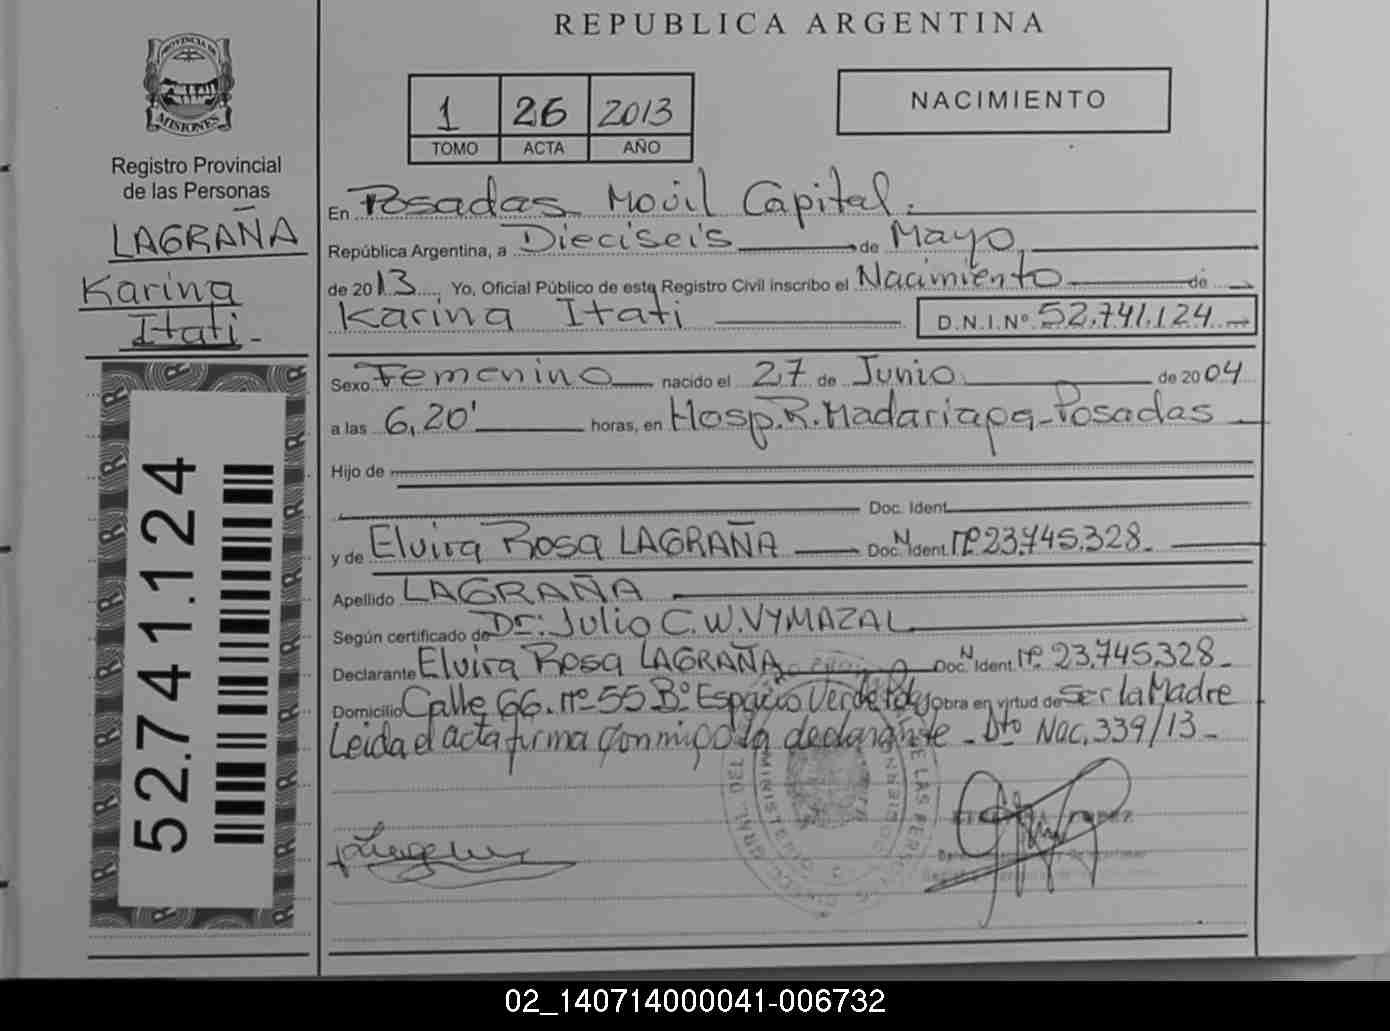 REPUBLICA ARGENTINA
PROVINCIA DE
MISIONES
Registro Provincial
de las Personas
LAGRAÑA
Karina
Itati.-
52.741.124
1 26 2013
TOMO ACTA AÑO
NACIMIENTO
En Posadas Movil Capital.
República Argentina, a Dieciseis de Mayo
de 2013, Yo, Oficial Público de este Registro Civil inscribo el Nacimiento de
Karina Itati D.N.I.Nº 52.741.124
Sexo Femenino nacido el 27 de Junio de 2004
a las 6,20' horas, en Hosp.R.Madariaga-Posadas
Hijo de
Doc. Ident.
y de Elvira Rosa LAGRAÑA Doc.N.Ident. nº 23.745.328.
Apellido LAGRAÑA
Según certificado de Dr. Julio C.W.VYMAZAL
Declarante Elvira Rosa LAGRAÑA Doc.N.Ident. nº 23.745.328
Domicilio Calle 66. nº 55 Bº Espacio Verde Pdas obra en virtud de ser la Madre
Leida el acta firma conmigo la declarante - Dto Nac. 339/13-
02_140714000041-006732